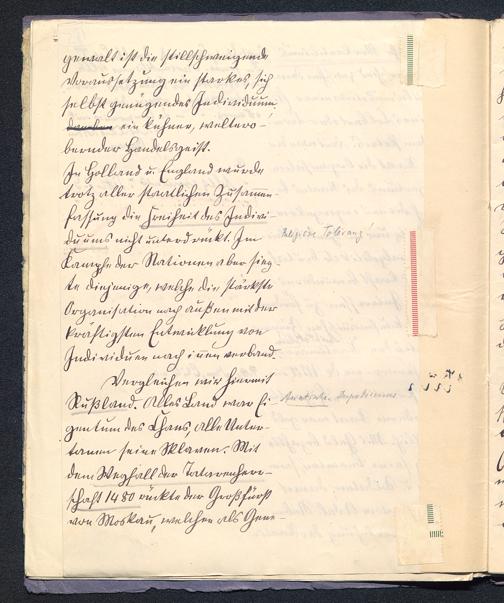 gewalt ist die stillschweigende
Voraussetzung ein starkes, sich
selbst genügendes Individuum,
daneben ein kühner, weltero-
bernder Handelsgeist.
In Holland u. England wurde
trotz aller staatlichen Zusammen-
fassung die Freiheit des Indivi-
duums nicht unterdrückt. Im
Kampfe der Nationen aber sieg-
te diejenige, welche die stärkste
Organisation nach außen mit der
kräftigsten Entwicklung von
Individuen nach innen verband.
Religiöse Toleranz!
Vergleichen wir hiermit
Rußland. Alles Land war Ei-
gentum des Chans, alle Unter-
tanen seine Sklaven. Mit
dem Wegfall der Tatarenherr-
schaft 1480 rückte der Großfürst
von Moskau, welcher als Gene-